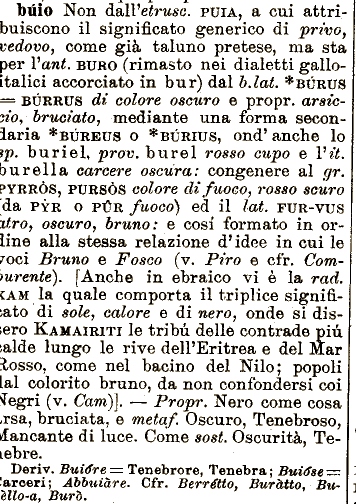 búio Non dall'etrusc. PUIA, a cui attri-
buiscono il significato generico di privo,
vedovo, come già taluno pretese, ma sta
per l'ant. BURO (rimasto nei dialetti gallo-
italici accorciato in bur) dal b.lat. *BÚRUS
= BÚRRUS di colore oscuro e propr. arsic-
cio, bruciato, mediante una forma secon-
daria *BÚREUS o *BÚRIUS, ond'anche lo
sp. buriel, prov. burel rosso cupo e l'it.
burella carcere oscura: congenere al gr.
PYRRÒS, PURSÒS colore di fuoco, rosso scuro
(da PŶR o PÛR fuoco) ed il lat. FUR-VUS
atro, oscuro, bruno: e cosí formato in or-
dine alla stessa relazione d'idee in cui le
voci Bruno e Fosco (v. Piro e cfr. Com-
burente). [Anche in ebraico vi è la rad.
KAM la quale comporta il triplice signifi-
cato di sole, calore e di nero, onde si dis-
sero KAMAIRITI le tribú delle contrade piú
calde lungo le rive dell'Eritrea e del Mar
Rosso, come nel bacino del Nilo; popoli
dal colorito bruno, da non confondersi coi
Negri (v. Cam)]. — Propr. Nero come cosa
arsa, bruciata, e metaf. Oscuro, Tenebroso,
Mancante di luce. Come sost. Oscurità, Te-
nebre.
Deriv. Buióre = Tenebrore, Tenebra; Buióse =
Carceri; Abbuiàre. Cfr. Berrétto, Buràtto, Bu-
rèllo-a, Burò.